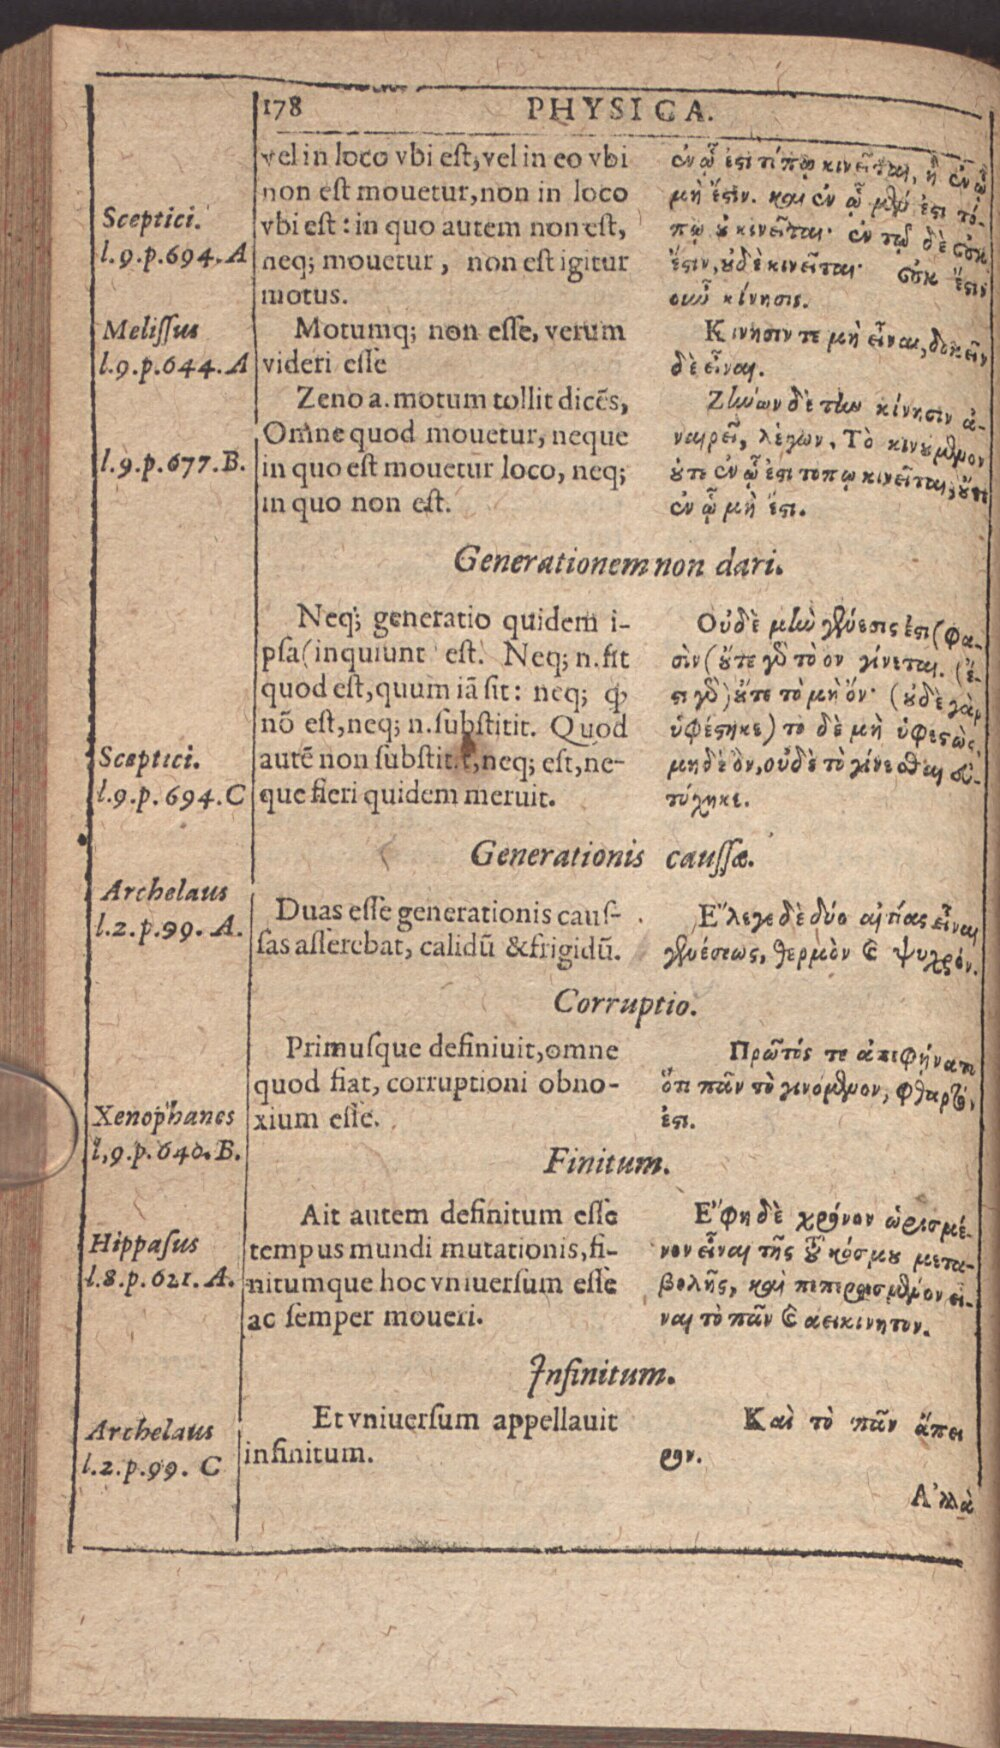 178 PHYSICA.
Sceptici.
l.9.p.694.A
vel in loco vbi est, vel in eo vbi
non est mouetur, non in loco
vbi est: in quo autem non est,
neq; mouetur, non est igitur
motus.
ἐν ᾧ ἐστι τόπῳ κινεῖται, ἢ ἐν ᾧ
μὴ ἔστιν. καὶ ἐν ᾧ μὲν ἐστι τό-
πῳ οὐ κινεῖται· ἐν τῷ δὲ οὐκ
ἔστιν, οὐδὲ κινεῖται· οὐκ ἔστιν
οὖν κίνησις.
Melissus
l.9.p.644.A
Motumq; non esse, verum
videri esse
Κινησιν τε μὴ εἶναι, δοκεῖν
δὲ εἶναι.
l.9.p.677.B.
Zeno a. motum tollit dicēs,
Omne quod mouetur, neque
in quo est mouetur loco, neq;
in quo non est.
Ζήνων δὲ τὴν κίνησιν ἀ-
ναιρεῖ, λέγων, Τὸ κινούμενον
οὔτε ἐν ᾧ ἐστι τοπῳ κινεῖται, οὔτε
ἐν ᾧ μὴ ἔστι.
Generationem non dari.
Sceptici.
l.9.p.694.C
Neq; generatio quidem i-
psa (inquiunt est. Neq; n. fit
quod est, quum iã sit: neq; ꝙ
nõ est, neq; n. substitit. Quod
autẽ non substit.t, neq; est, ne-
que fieri quidem meruit.
Οὐδὲ μὴν γένεσις ἐστι (φα-
σὶν (οὔτε γὰρ τὸ ον γίνεται. (ἔ-
στι γὰρ) οὔτε τὸ μὴ ὄν· (οὐδὲ γὰρ
ὑφέστηκε) το δὲ μὴ ὑφεστὼς,
μηδὲ ὂν, οὐδὲ τὸ γίνεσθαι εὐ-
τύχηκε.
Generationis caussæ.
Archelaus
l.2.p.99. A.
Duas esse generationis caus-
sas asserebat, calidũ & frigidũ.
Ἔλεγε δὲ δύο αἰτίας εἶναι
γενέσεως, θερμὸν καὶ ψυχρόν.
Corruptio.
Xenophanes
l,9.p.640.B.
Primusque definiuit, omne
quod fiat, corruptioni obno-
xium esse.
Πρῶτός τε ἀπεφήνατο
ὅτι πᾶν τὸ γινόμενον, φθαρτόν
ἐστι.
Finitum.
Hippasus
l.8.p.621.A.
Ait autem definitum esse
tempus mundi mutationis, fi-
nitumque hoc vniuersum esse
ac semper moueri.
Ἔφη δὲ χρόνον ὡρισμέ-
νον εἶναι τῆς τοῦ κόσμου μετα-
βολῆς, καὶ πεπερασμένον εἶ-
ναι τὸ πᾶν καὶ αεικινητον.
Infinitum.
Archelaus
l.2.p.99. C
Et vniuersum appellauit
infinitum.
Καὶ τὸ πᾶν ἄπει
ρον.
Ἀλλὰ